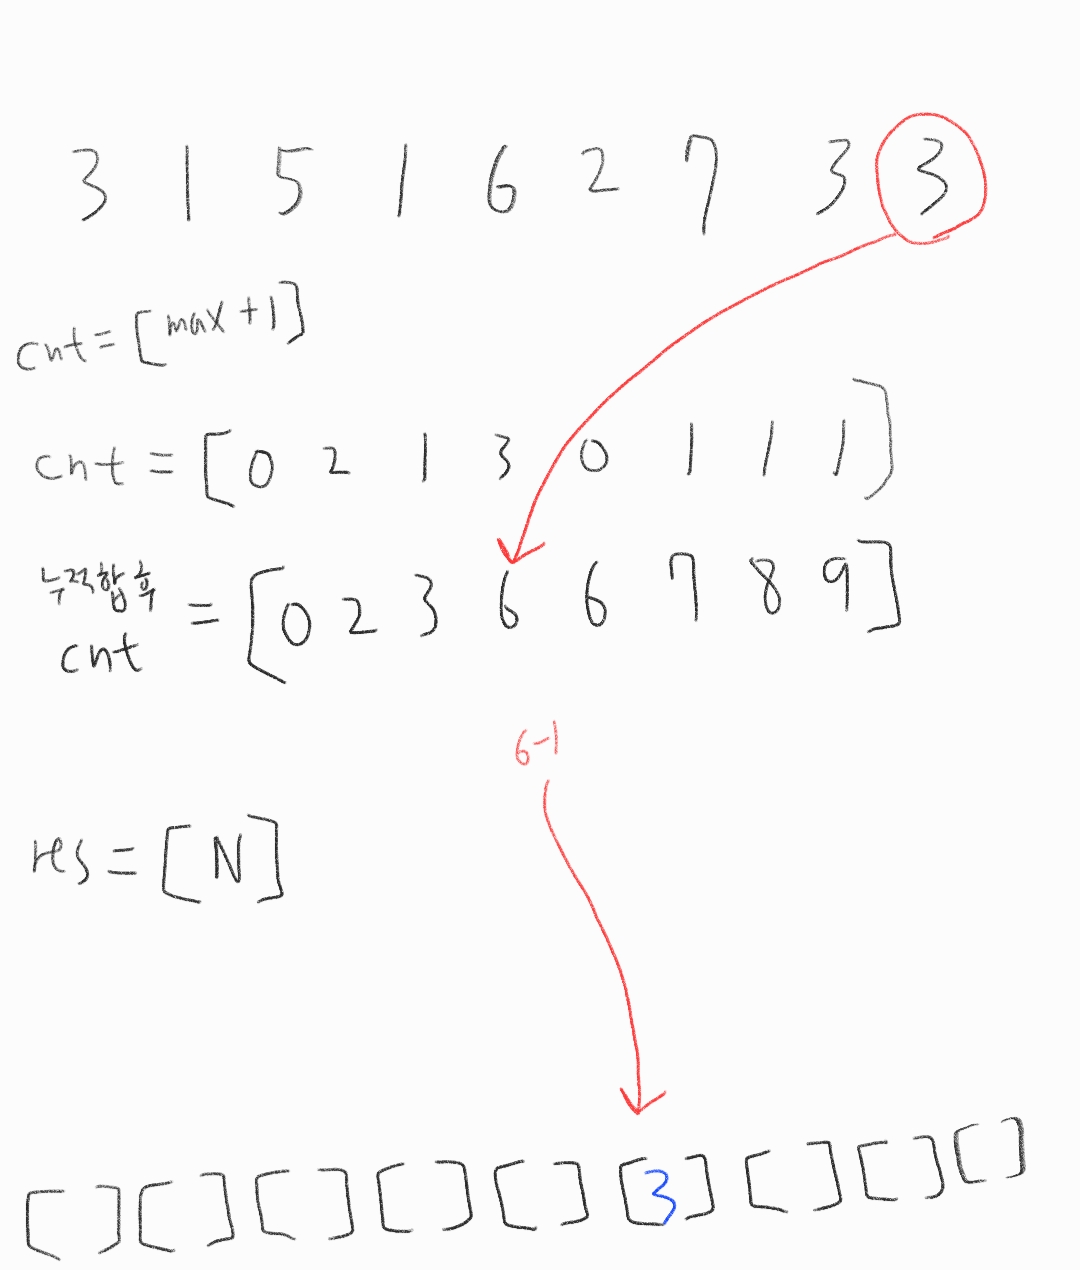 3 1 5 1 6 2 7 3 3
cnt = [max+1]
cnt = [0 2 1 3 0 1 1 1]
누적합 후
cnt = [0 2 3 6 6 7 8 9]
6-1
res = [N]
[ ] [ ] [ ] [ ] [ ] [3] [ ] [ ] [ ]